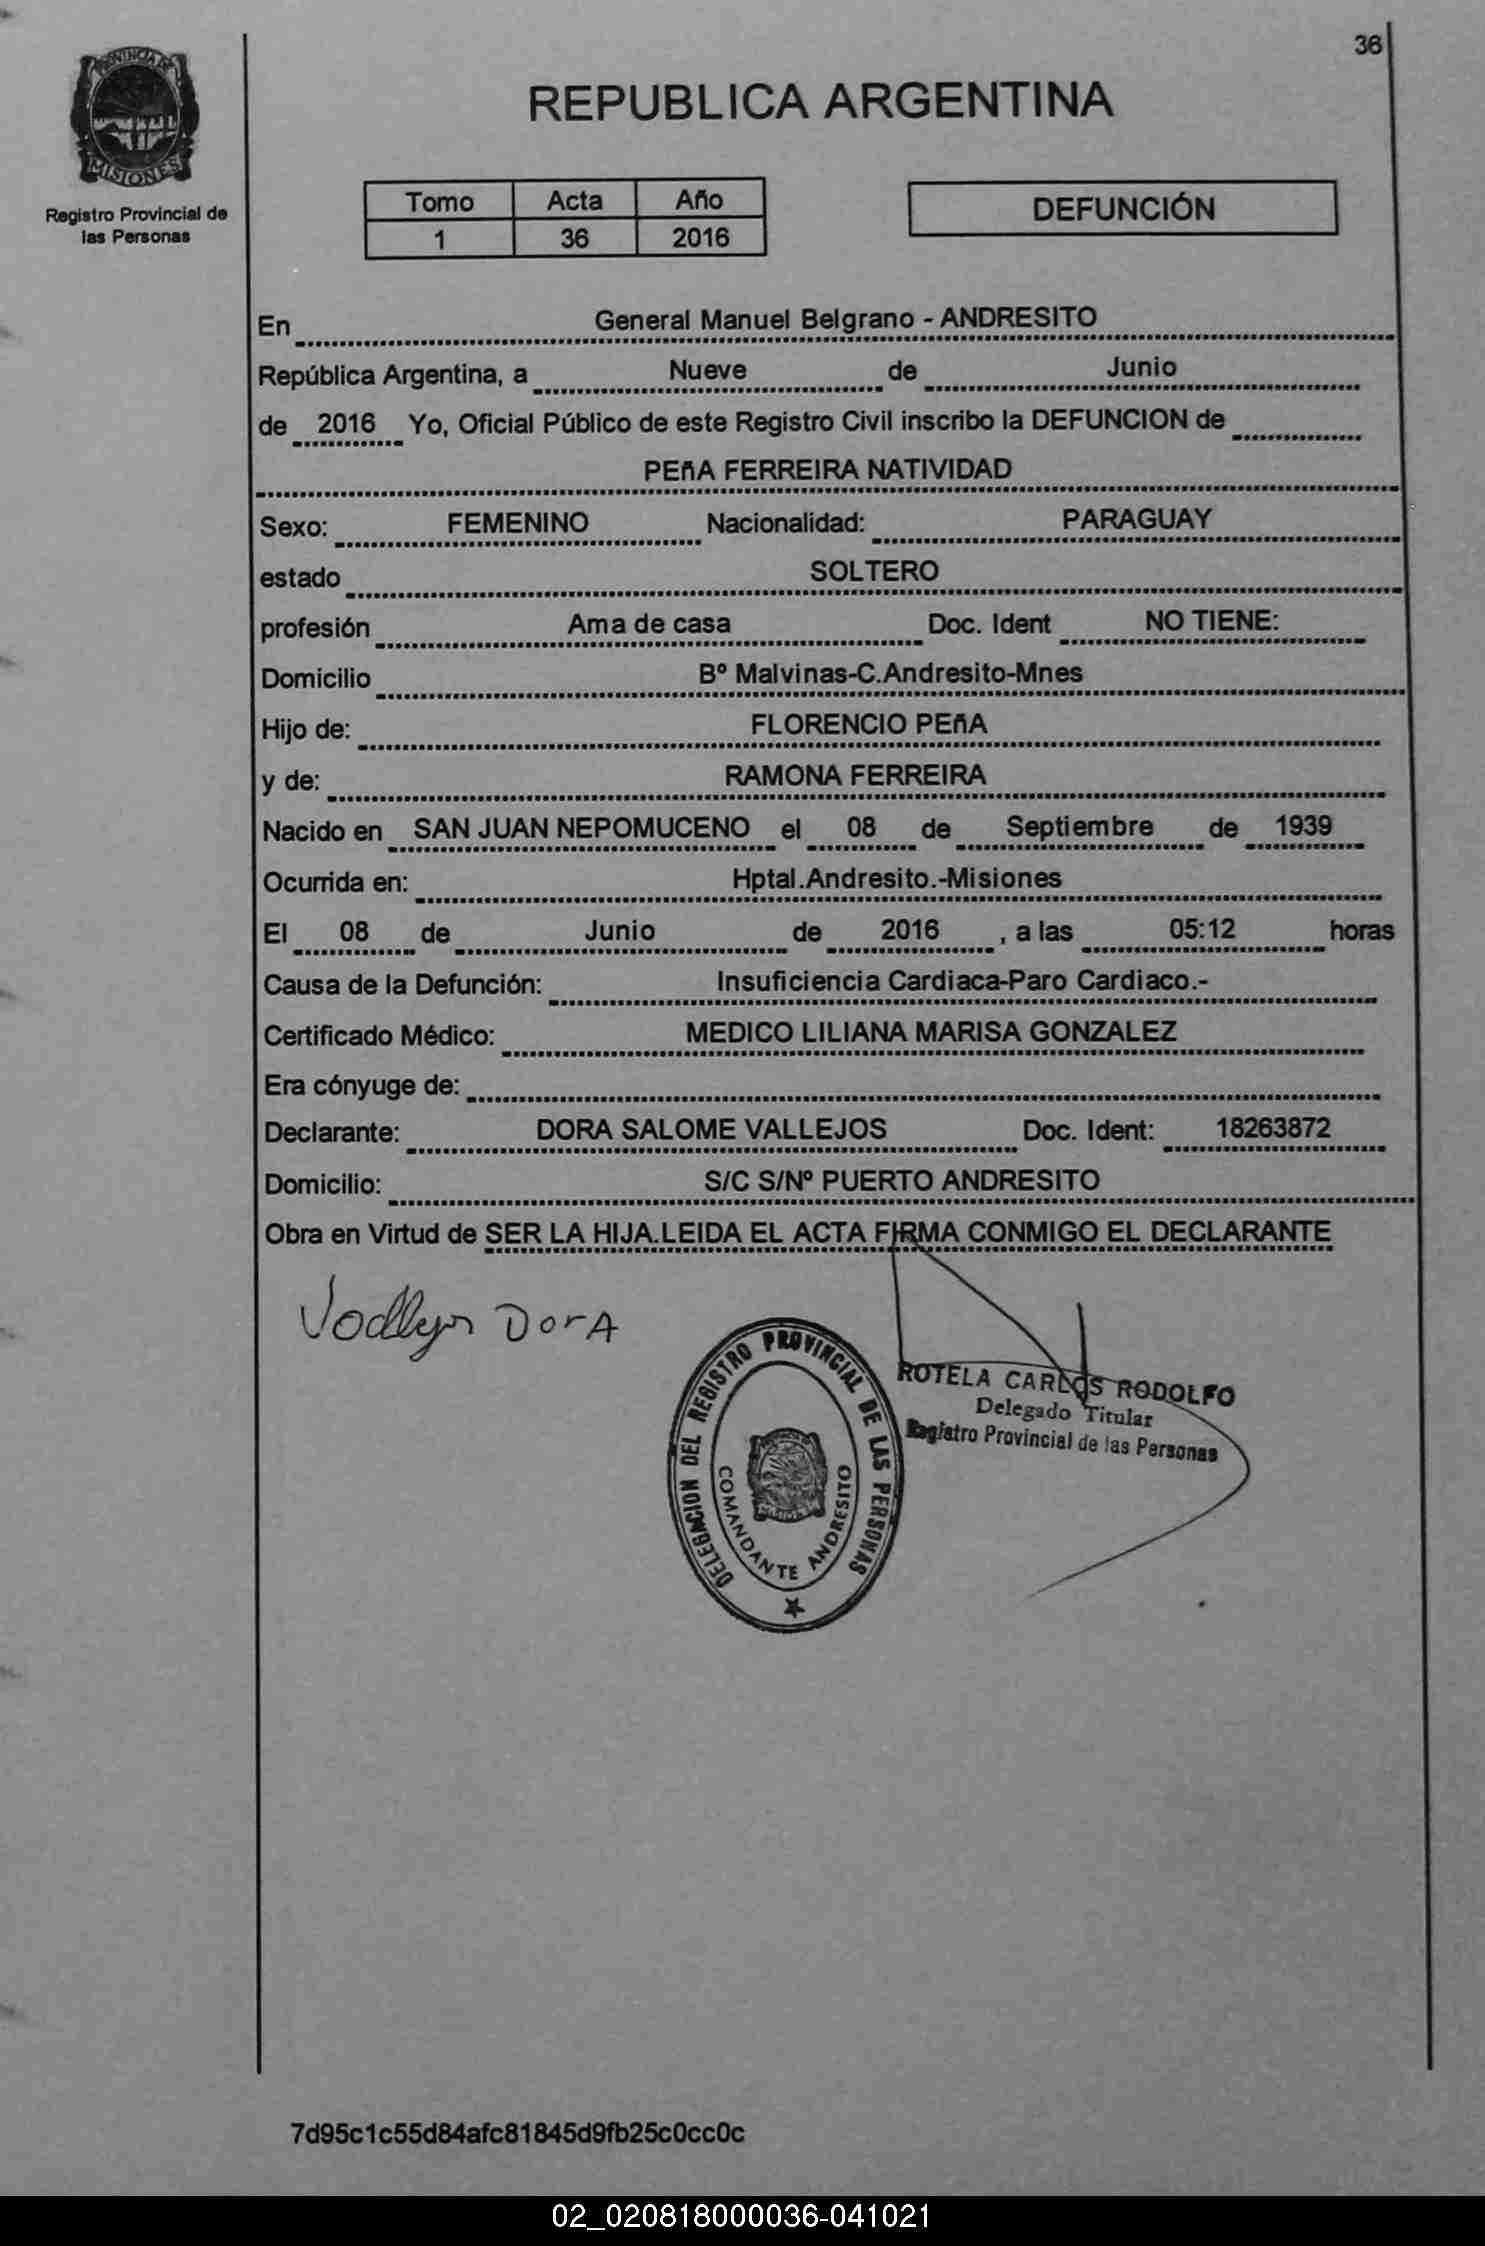 36
PROVINCIA DE
MISIONES
Registro Provincial de
las Personas
REPUBLICA ARGENTINA
Tomo Acta Año
1 36 2016
DEFUNCIÓN
En General Manuel Belgrano - ANDRESITO
República Argentina, a Nueve de Junio
de 2016 Yo, Oficial Público de este Registro Civil inscribo la DEFUNCION de
PEñA FERREIRA NATIVIDAD
Sexo: FEMENINO Nacionalidad: PARAGUAY
estado SOLTERO
profesión Ama de casa Doc. Ident NO TIENE:
Domicilio Bº Malvinas-C.Andresito-Mnes
Hijo de: FLORENCIO PEñA
y de: RAMONA FERREIRA
Nacido en SAN JUAN NEPOMUCENO el 08 de Septiembre de 1939
Ocurrida en: Hptal.Andresito.-Misiones
El 08 de Junio de 2016 , a las 05:12 horas
Causa de la Defunción: Insuficiencia Cardiaca-Paro Cardiaco.-
Certificado Médico: MEDICO LILIANA MARISA GONZALEZ
Era cónyuge de:
Declarante: DORA SALOME VALLEJOS Doc. Ident: 18263872
Domicilio: S/C S/Nº PUERTO ANDRESITO
Obra en Virtud de SER LA HIJA.LEIDA EL ACTA FIRMA CONMIGO EL DECLARANTE
DorA
DELEGACION DEL REGISTRO PROVINCIAL DE LAS PERSONAS
COMANDANTE ANDRESITO
ROTELA CARLOS RODOLFO
Delegado Titular
Registro Provincial de las Personas
7d95c1c55d84afc81845d9fb25c0cc0c
02_020818000036-041021